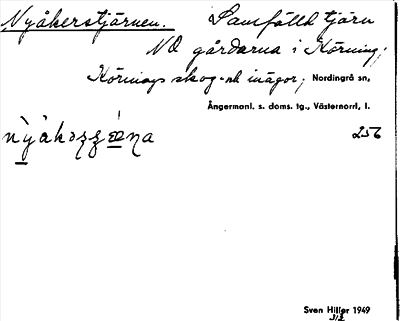 Nyåkerstjärnen. Samfälld tjärn
NO gårdarna i Körning;
Körnings skog- och inägor; Nordingrå sn,
Ångermanl. s. doms. tg., Västernorrl. l.
256
Sven Hiller 1949